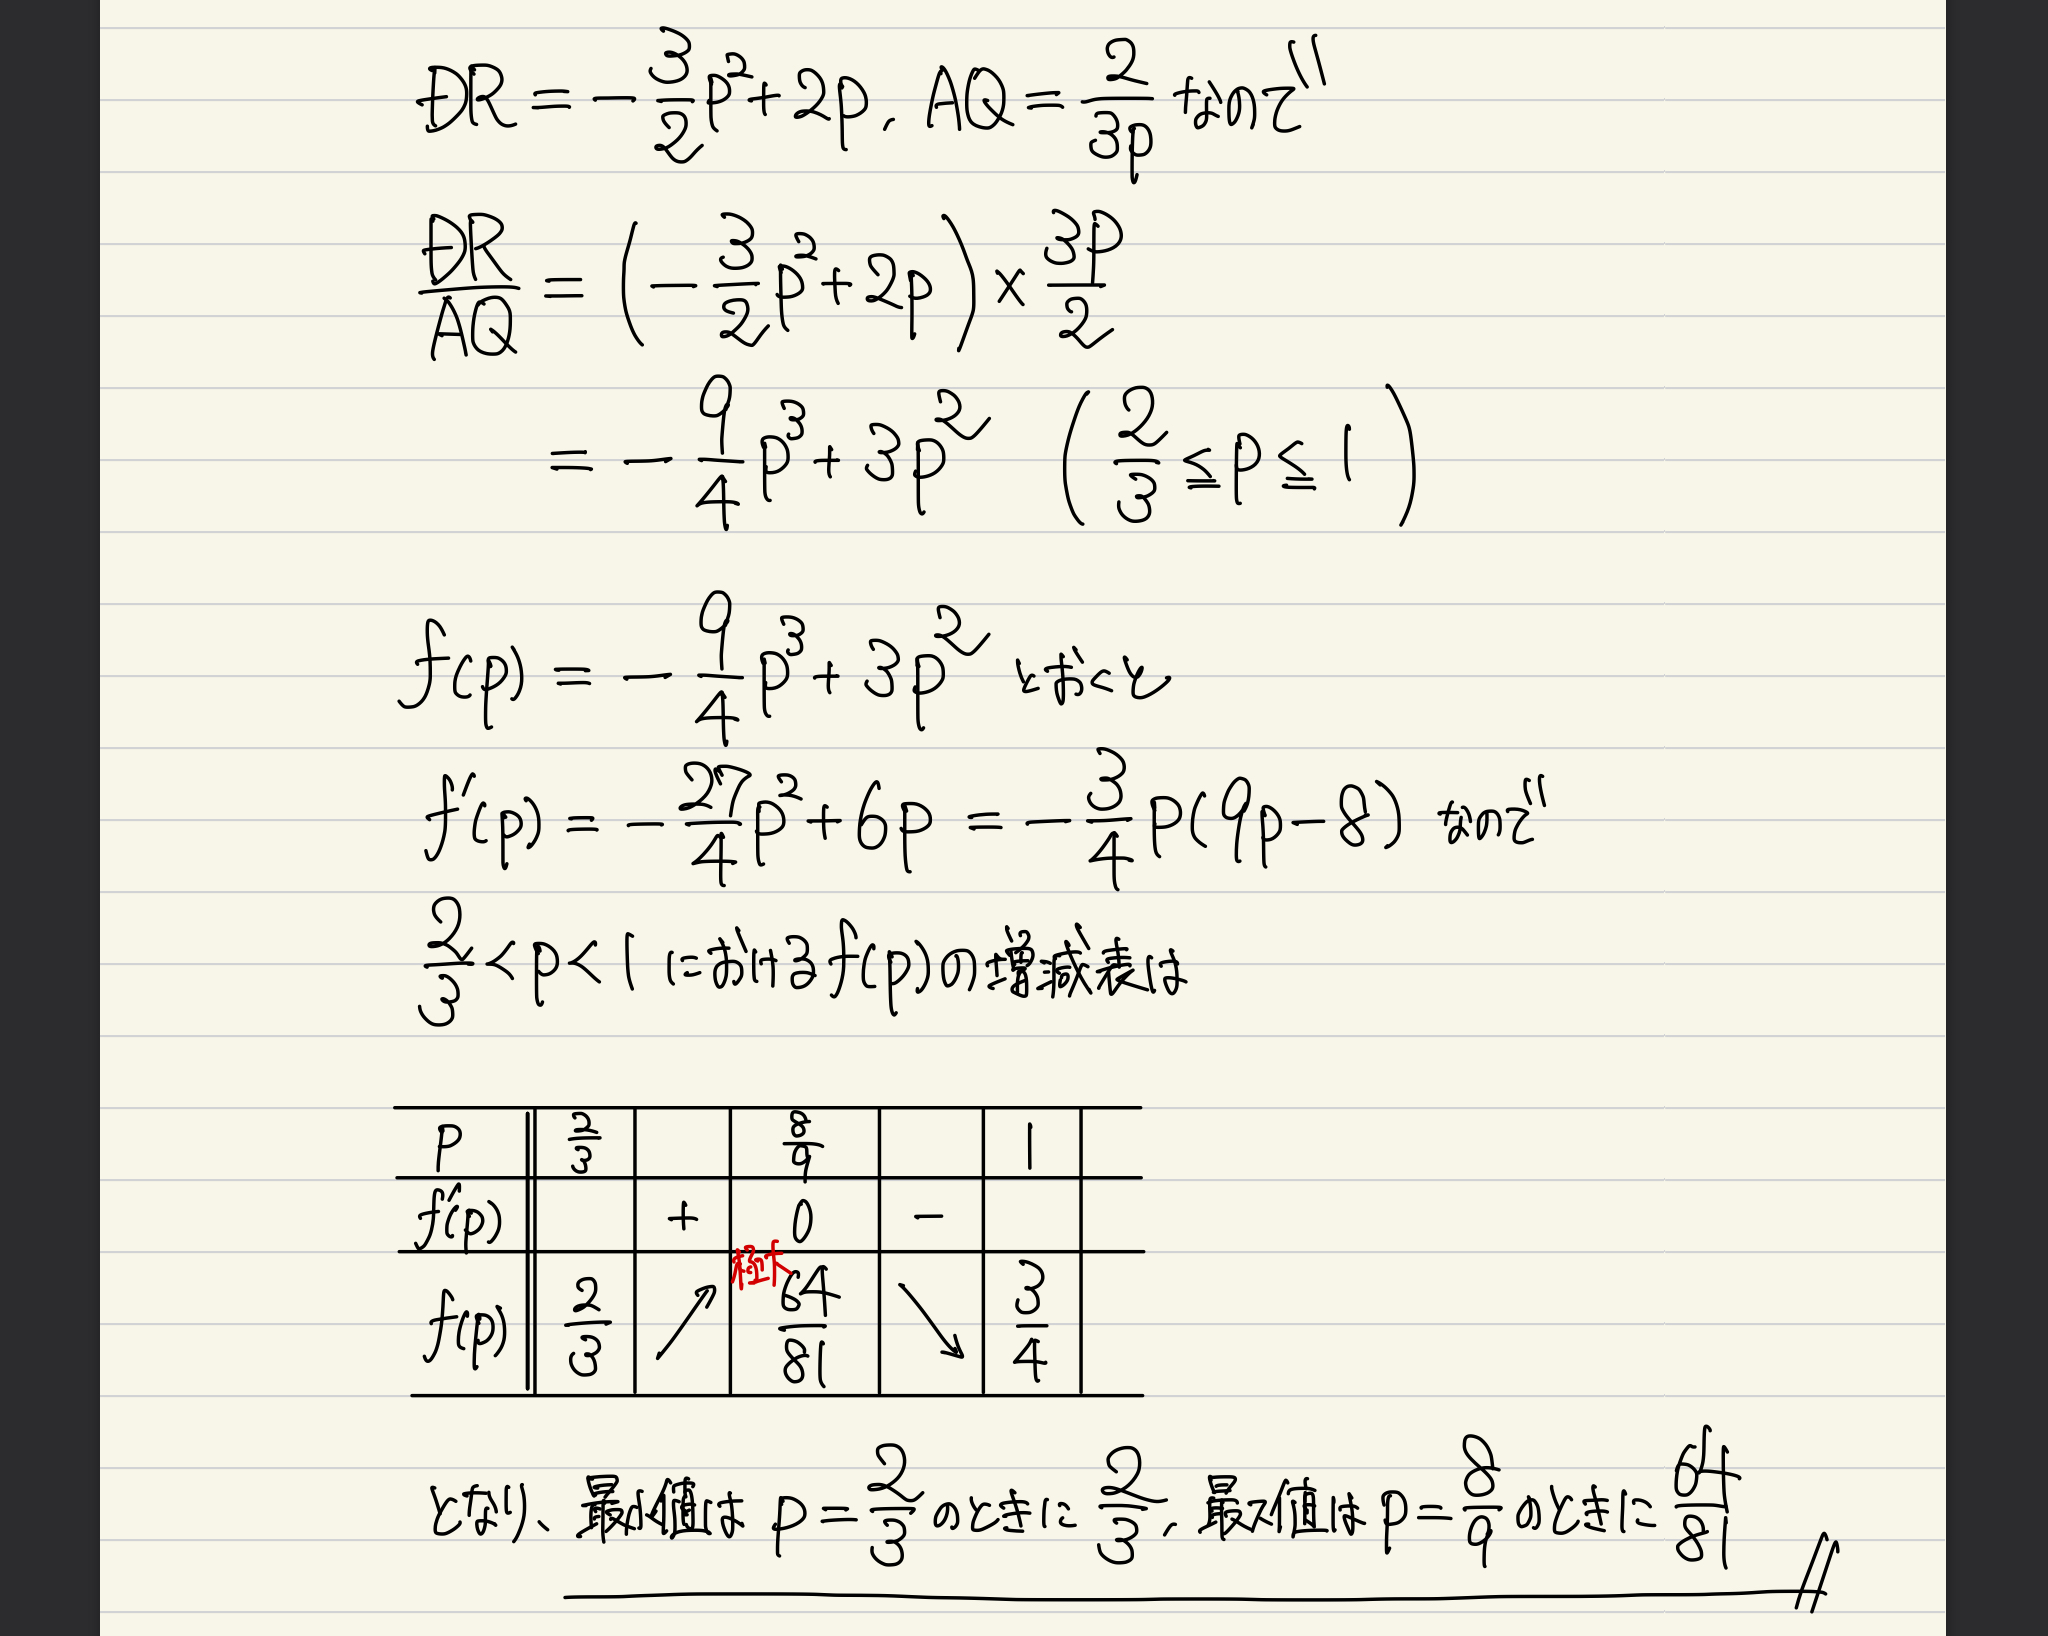 DR = -3/2 p² + 2p, AQ = 2/3p なので
DR/AQ = (-3/2 p² + 2p) × 3p/2
= -9/4 p³ + 3p² (2/3 ≦ p ≦ 1)
f(p) = -9/4 p³ + 3p² とおくと
f'(p) = -27/4 p² + 6p = -3/4 p(9p-8) なので
2/3 < p < 1 における f(p) の増減表は
p 2/3 8/9 1
f'(p) + 0 -
f(p) 2/3 ↗ 極大 64/81 ↘ 3/4
となり、最小値は p = 2/3 のときに 2/3, 最大値は p = 8/9 のときに 64/81 //